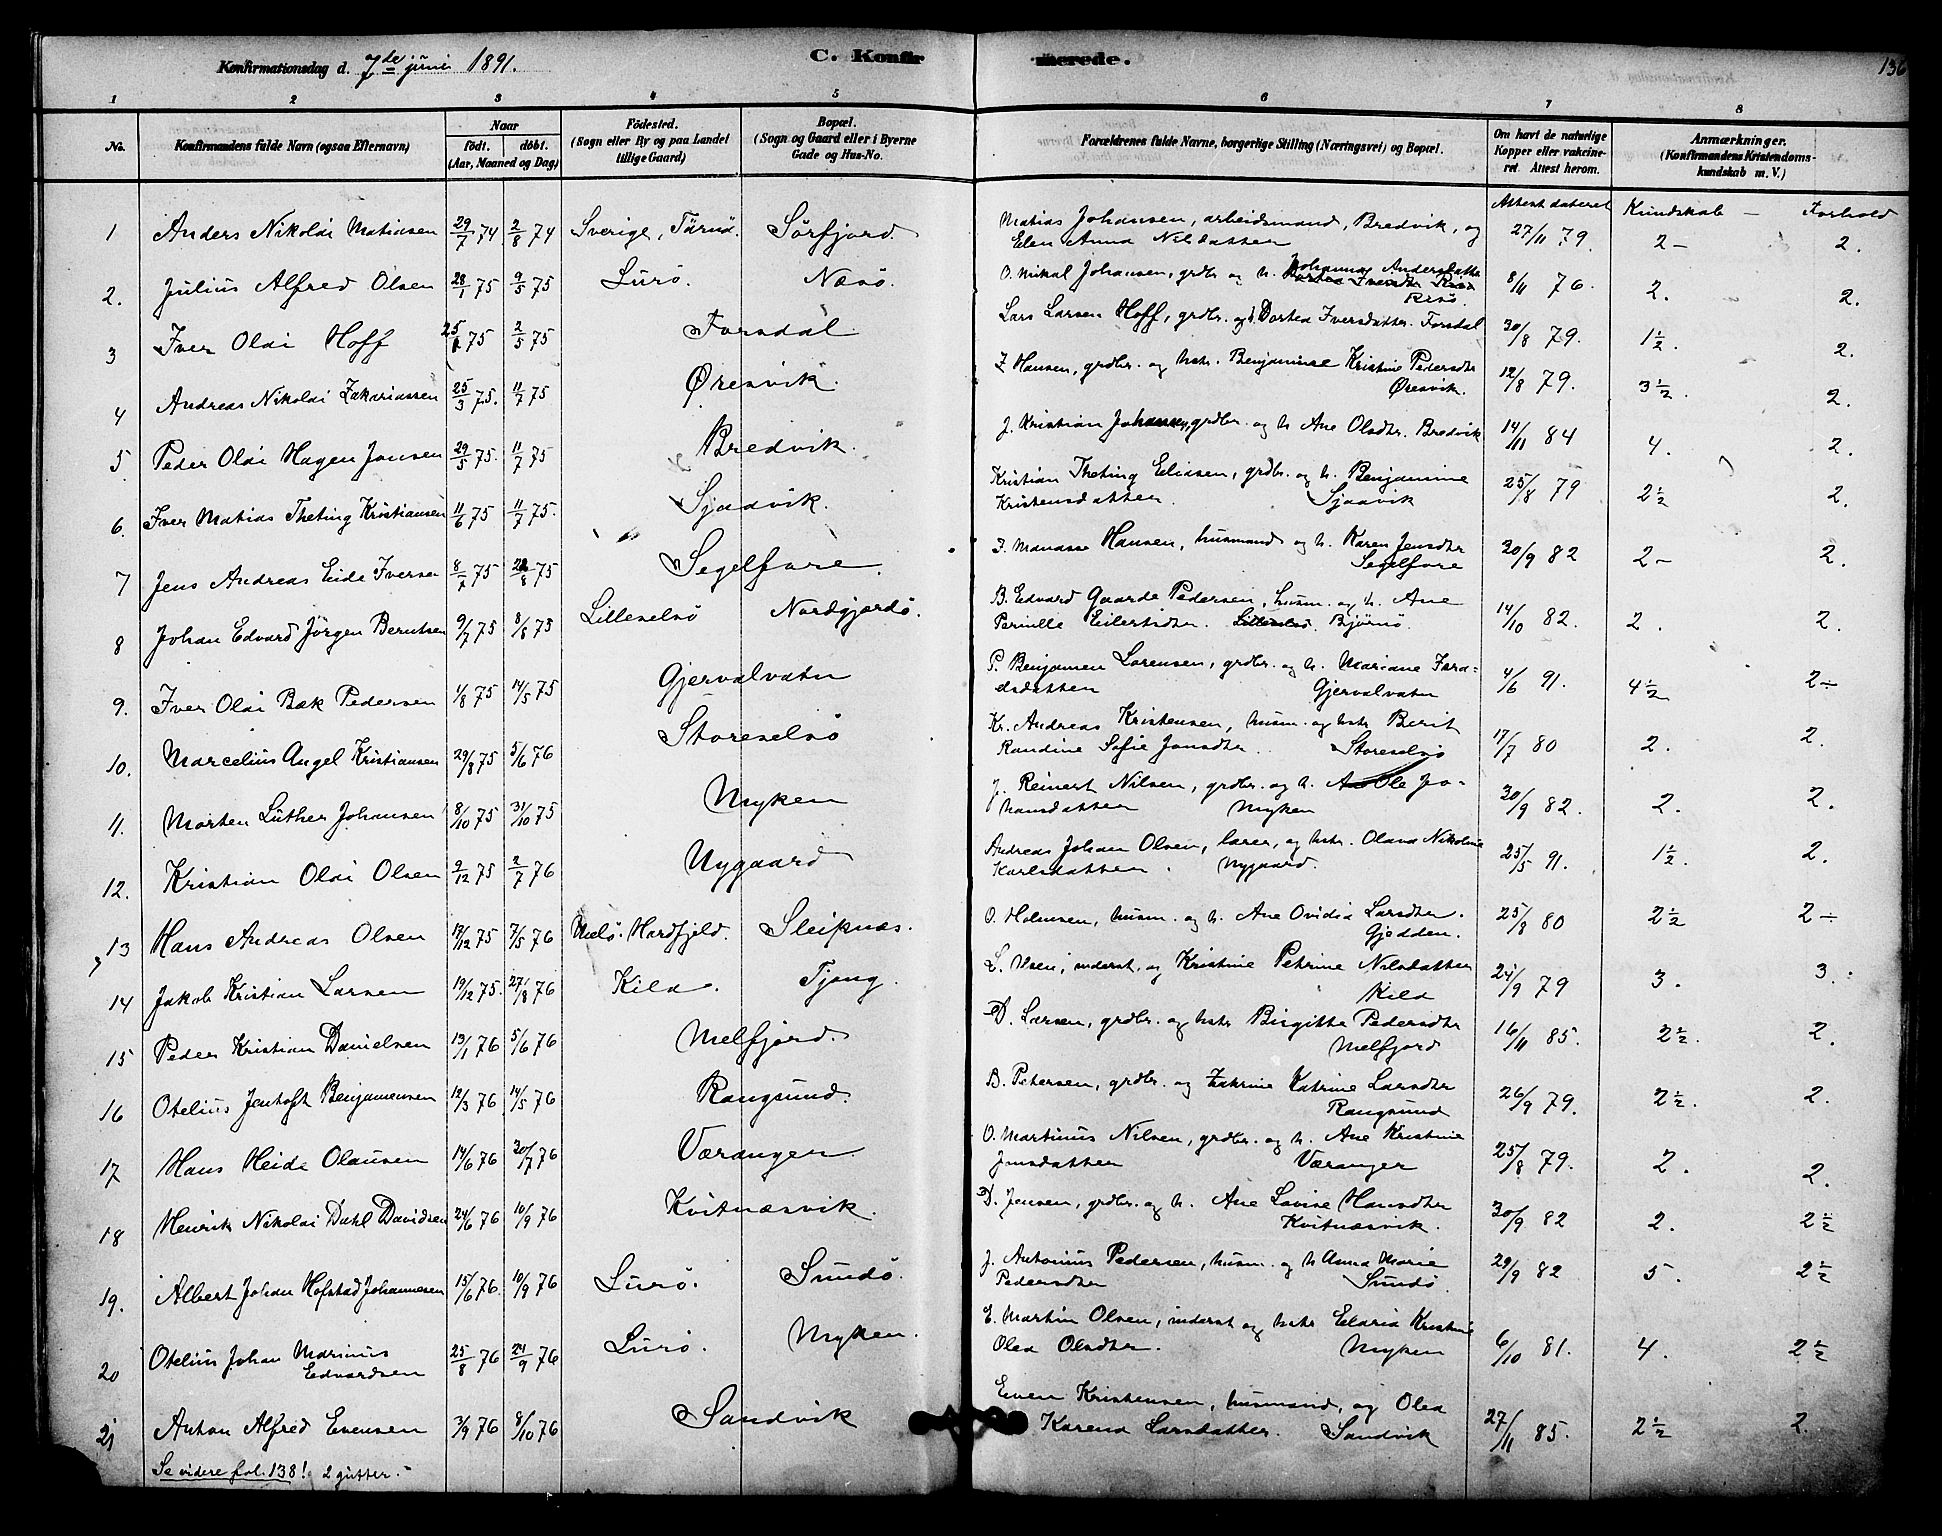 Konfirmationsdag d. 7de juni 1891. C. Konfirmerede. 136
1 2 3 4 5 6 7 8
No. Konfirmandens fulde Navn (ogsaa Efternavn) Naar født. døbt. (Aar, Maaned og Dag) Fødested. (Sogn eller By og paa Landet tillige Gaard) Bopæl. (Sogn og Gaard eller i Byerne Gade og Hus-No. Forældrenes fulde Navne, borgerlige Stilling (Næringsvei) og Bopæl. Om havt de naturlige Kopper eller vakcineret Attest herom. Anmærkninger. (Konfirmandens Kristendomskundskab m. V.)
Attest dateret Kundskab — Forhold
1 Anders Nikolai Matiasen 29/7 74 2/8 74 Sverige, Tärna. Sörfjord. Matias Johansen, arbeidsmand, Bredvik, og Elen Anna Nilsdatter 27/11 79. 2- 2.
2. Julius Alfred Olsen 28/1 75 9/5 75 Lurö. Næsö. O. Mikal Johansen, grdbr. og h. Johanna Andersdatter Resö. 8/11 76. 2. 2.
3 Iver Olai Hoff 25/1 75 2/5 75 Forsdal Lars Larsen Hoff, grdbr. og h. Dortea Iversdatter. Forsdal 30/8 79. 1½. 2.
4 Andreas Nikolai Zakariassen 25/3 75. 11/7 75 Øresvik. Z Hansen, grdbr. og hstr. Benjamine Kristine Pedersdtr Øresvik. 12/8 79. 3½. 2.
5 Peder Olai Hagen Jensen 29/5 75. 11/7 75 Bredvik. J. Kristian Johansen, grdbr. og h Ane Olsdtr. Bredvik 14/11 84 4. 2.
6. Iver Matias Theting Kristiansen 11/6 75 11/7 75. Sjaavik. Kristian Theting Eliasen, grdbr. og h. Benjamine Kristensdatter. Sjaavik 25/8 79 2½ 2.
7 Jens Andreas Eide Iversen 8/7 75 22/8 75 Segelfore. I. Manasse Hansen, husmand og h. Karen Jensdtr Segelfore 30/9 82 2- 2.
8 Johan Edvard Jörgen Berntsen 9/7 75 8/8 75 Lilleselsö Nordgjerdö. B. Edvard Gaarde Pedersen, husm. og h. Ane Pernille Eilertsdtr. Lilleselsö. Bjørnö. 14/10 82. 2. 2.
9. Iver Olai Bæk Pedersen 1/8 75 14/5 75 Gjervalvatn P. Benjamen Lorensen, grdbr. og h. Mariane Faradsdatter Gjervalvatn 4/6 91. 4½ 2÷
10. Marcelius Angel Kristiansen 29/8 75 5/6 76 Storeselsö Kr. Andreas Kristensen, husm. og hstr Berit Randine Sofie Jonsdtr. Storeselsö 17/7 80 2. 2.
11. Morten Luther Johansen 8/10 75 31/10 75 Myken J. Reinert Nilsen, grdbr. og h. Ole Johansdatter Myken 30/9 82. 2. 2.
12. Kristian Olai Olsen 9/12 75 2/7 76 Nygaard Andreas Johan Olsen, lærer, og hstr. Olava Nikoline Karlsdatter. Nygaard. 25/5 91. 1½. 2.
13 Hans Andreas Olsen 17/12 75 7/5 76 Melö. Hardfjeld. Sleipnæs. O. Holmsen, husm. og h. Ane Ovidia Larsdtr. Gjedden. 25/8 80 2½ 2÷
14 Jakob Kristian Larsen 19/12 75. 27/8 76 Kila. Tjong. L. Olsen, inderst, og Kristine Petrine Nilsdatter Kila 24/9 79 3. 3.
15 Peder Kristian Danielsen 19/1 76 5/6 76 Melfjord. D. Larsen, grdbr. og hstr Birgitte Pedersdtr Melfjord 16/11 85. 2½. 2.
16 Otelius Jentoft Benjamensen 12/3 76 14/5 76 Rangsund. B. Petersen, grdbr. og Katrine Larsdtr Rangsund 26/9 79. 2½. 2.
17 Hans Heide Olausen 14/6 76 30/7 76 Væranger O. Martinus Nilsen, grdbr. og h. Ane Kristine Jensdatter Væranger 25/8 79. 2. 2.
18 Henrik Nikolai Dahl Davidsen 24/6 76 10/9 76 Kvitnæsvik. D. Jensen, grdbr. og h. Ane Lovise Hansdtr Kvitnæsvik. 30/9 82 2. 2½
19. Albert Johan Hofstad Johannesen 15/6 76. 10/9 76 Lurö. Sundö. J. Antonius Pedersen, husm. og h Anna Marie Pedersdtr Sundö. 29/9 82 5. 2½
20 Otelius Johan Marinus Edvardsen 25/8 76 24/9 76 Lurö. Myken. E. Martin Olsen, inderst og hstr Elaria Kristine Olea Olsdtr. Myken 6/10 81. 4. 2½
21 Anton Alfred Evensen 3/9 76 8/10 76 Sandvik Even Kristensen, husmand, og Olea Karena Larsdatter. Sandvik 27/11 85. 2½ 2.
Se videre fol. 138! 2 gutter.